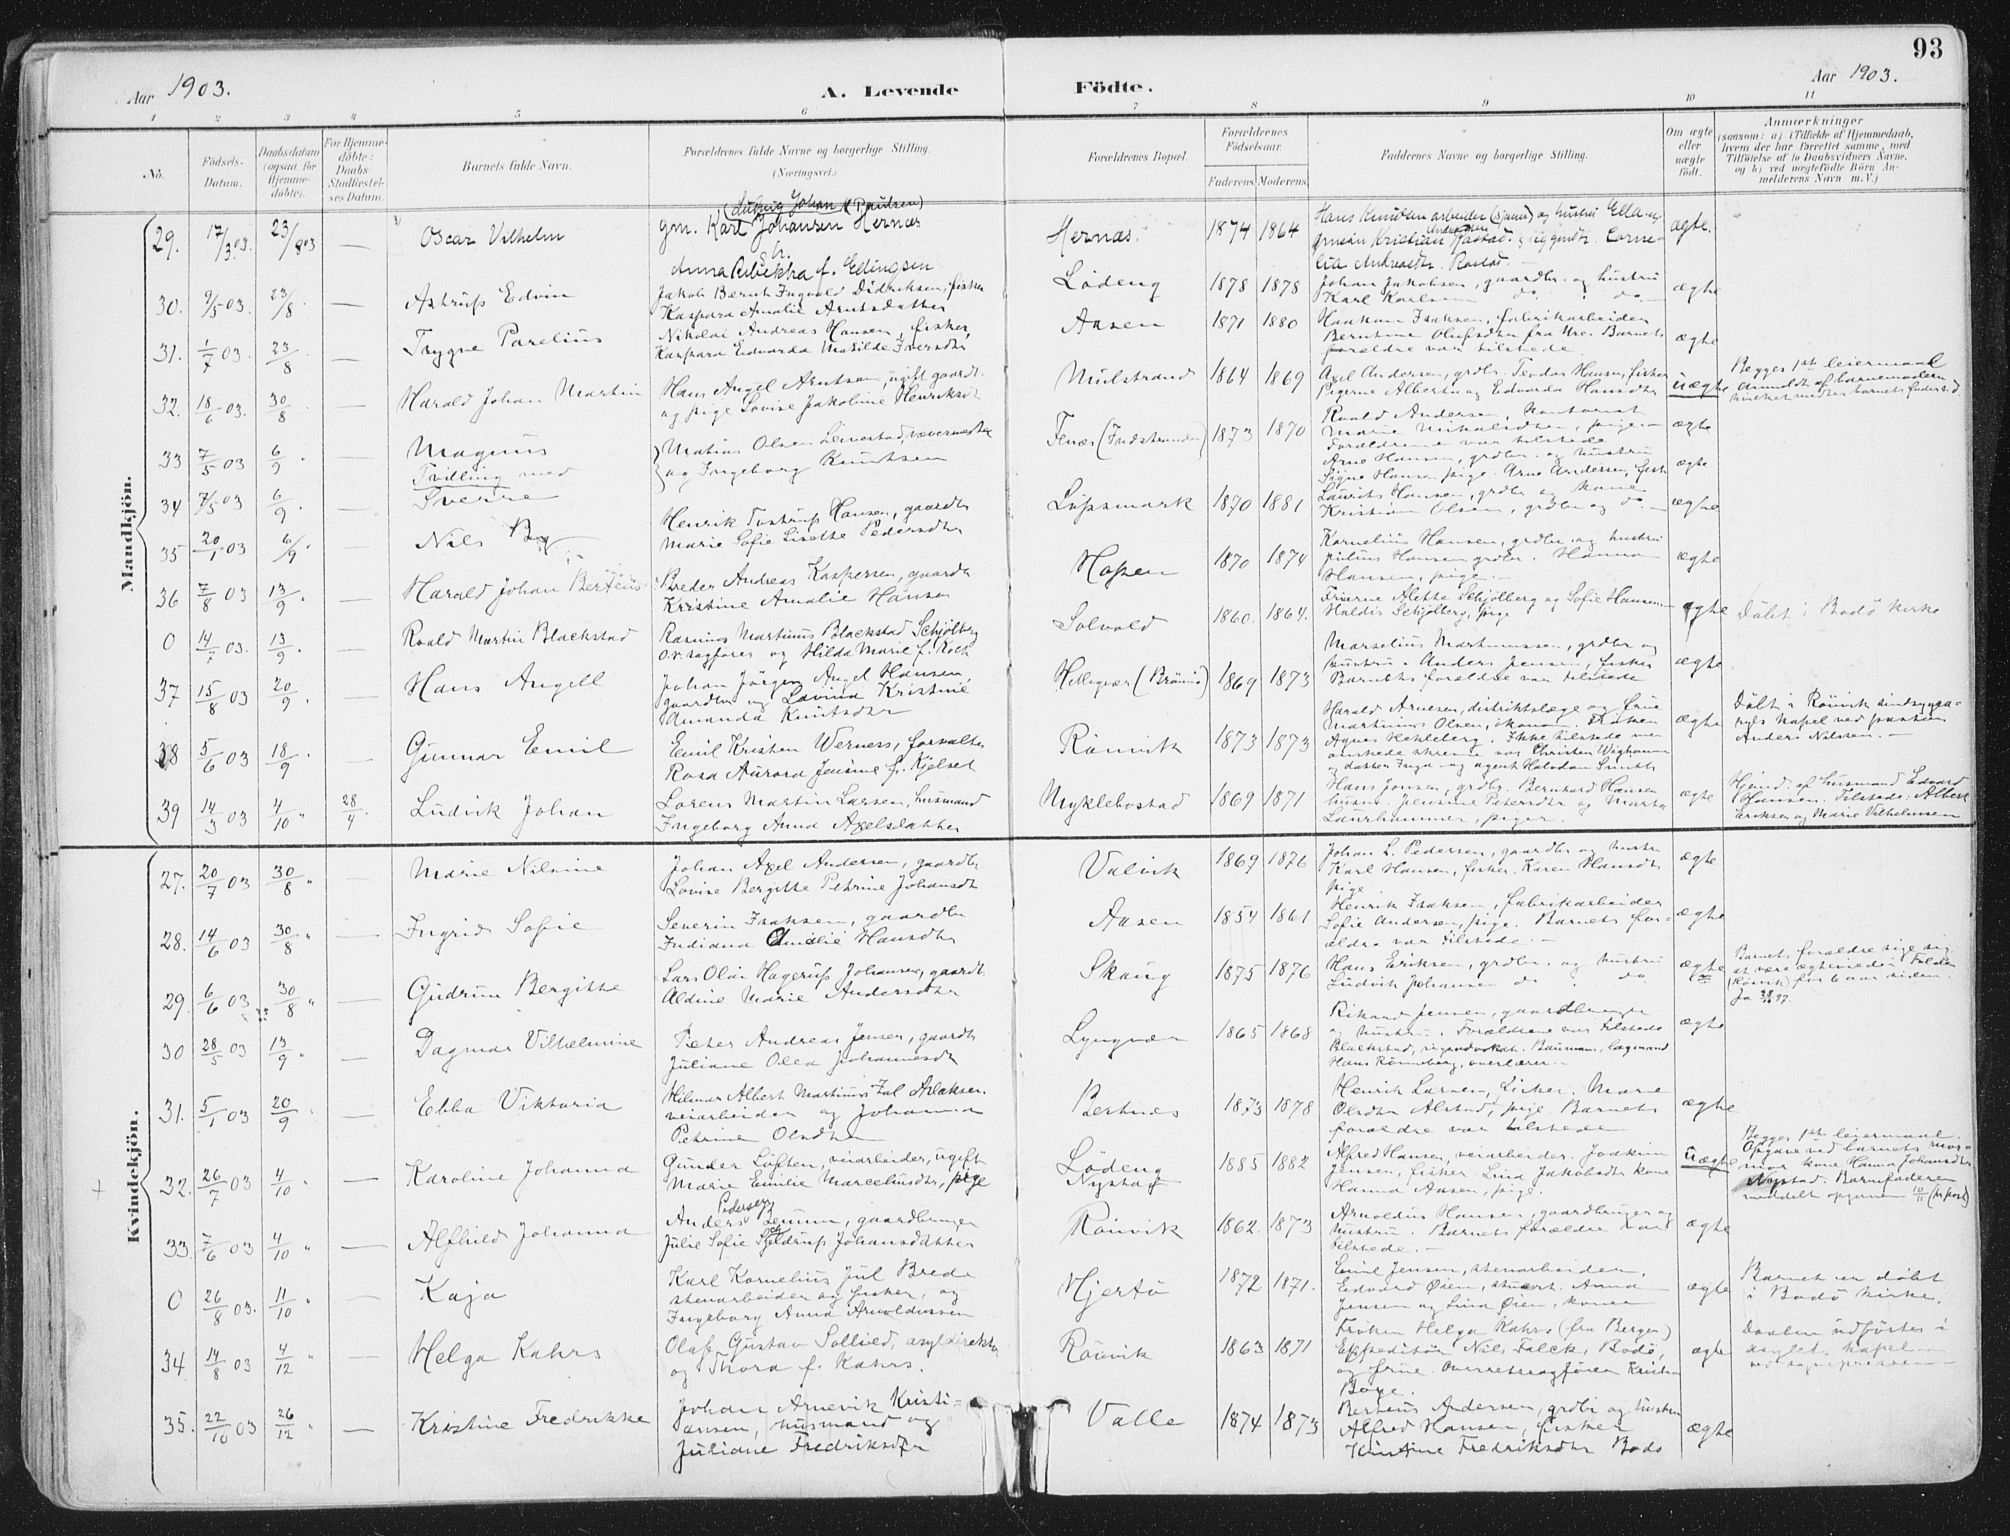 93
Aar 1903.
A. Levende
Födte.
Aar 1903.
1 2 3 4 5 6 7 8 9 10 11
No.
Födsels-Datum.
Daabsdatum (ogsaa for Hjemmedöbte).
For Hjemmedöbte: Daabs Stadfæstelses Datum.
Barnets fulde Navn.
Forældrenes fulde Navne og borgerlige Stilling.
(Næringsvei.)
Forældrenes Bopæl.
Forældrenes Födselsaar.
Faderens. Moderens.
Faddernes Navne og borgerlige Stilling.
Om ægte eller uægte födt.
Anmærkninger
(saasom: a) i Tilfælde af Hjemmedaab, hvem der har forrettet samme, med Tilföielse af to Daabsvidners Navne, og b) ved uægtefödte Börn Anmelderens Navn m. V.)
Mandkjön.
29. 17/3 03. 23/8 03 — Oscar Vilhelm
(Ludvig Johan Knudsen)
gm. Karl Johansen Hernæs
Anna Rebekka f. Edingsen
Hernæs. 1874 1864
Hans Knudsen arbeider og hustru Ella
ægte.
30. 9/5 03. 23/8 — Astrup Edvin
Jakob Bernt Ingvald Didriksen, fisker
Kaspara Amalie Arntsdatter
Löding 1878 1878
Johan Jakobsen, gaardbr. og hustru
Karl Karlsen do. do.
ægte
31. 1/7 03. 23/8 — Trygve Parelius
Nikolai Andreas Hansen, fisker,
Kaspara Edvarda Matilde Iversdtr
Aasen 1871 1880
Haakon Isaksen, fabrikarbeider
Berntine Olufsdtr fra Hre. Barnets
forældre var tilstede.
ægte
32. 18/6 03. 30/8 — Harald Johan Martin
Hans Angel Arntsen, ugift gaardb.
og pige Lovise Jakobine Henriksdt
Mulstrand 1864 1869
Axel Andersen, grdbr. Teodor Hansen, fisker
Pigerne Alberta og Edvarda Hansdtr
uægte
Begges 1ste leiermaal
Anmeldt af barnemoderen
33 7/5 03 6/9 — Magnus
Tvilling med
Matias Olsen Lenestad, væverm
og Ingeborg Knudtsen
Fenæs (Indstranden) 1873 1870
Roald Andersen, kontorist
Marie Nikolaisen, pige
Forældrene var tilstede
ægte
34 7/5 03 6/9 — Sverre
Arne Hansen, grdbr. og hustru
Signe Hansen, pige. Arne Andersen, fisk
ægte
35 20/1 03 6/9 — Nils By
Henrik Tostrup Hansen, gaardbr
Marie Sofie Lisette Pedersdtr
Löpsmark 1870 1881
Laurits Hansen, grdbr og kone
Kristian Olsen, grdbr og do. —
ægte
36 7/8 03 13/9 — Harald Johan Berteus
Breder Andreas Kaspersen, gaardbr
Kristine Amalie Hansen
Hopen 1870 1874
Kornelius Hansen, grdbr. og hustru
Julius Hansen grdbr. Hanna
Hansen, pige. —
ægte
0 14/7 03. 13/9 — Roald Martin Blackstad
Rasmus Martinus Blackstad Schjölberg
o.r.sagförer og Hilda Marie f. Roth
Solvold 1860. 1864.
Fruerne Alette Schjölberg og Sofie Hansen
Haldis Schjölberg, pige
ægte
Döbt i Bodö kirke
37 15/8 03 20/9 — Hans Angell
Johan Jörgen Angel Hansen,
gaardbr og Lavina Kristine
Amanda Knutsdtr
Helligvær (Brönnö) 1869 1873
Marselius Martinussen, grdbr og
hustru. Anders Jensen, fisker
Barnets forældre var tilstede
ægte
38 5/6 03 18/9 — Gunnar Emil
Emil Kristen Werness, forvalter
Rosa Aurora Jensine f. Kjelset
Rönvik 1873 1873
Harald Arnesen, distriktslæge og frue
Martinius Olsen, ökonom. Fröken
Agnes Hekleberg. Ikke tilstede men
ægte
Döbt i Rönvik sindssygeasyls kapel ved pastor
Anders Nilsen. —
39 14/3 03 4/10 28/4. Ludvik Johan
Lorens Martin Larsen, husmand
Ingeborg Anna Axelsdatter
Myklebostad 1869 1871
Hans Jonsen, grdbr. Bernhard Hansen
husm. Jensine Petersdtr og Marta
Laurhammer, piger.
ægte
Hjemd. af husmand Edvard
Hansen. Tilstede: Albert
Eriksen og Marie Vilhelmsen
Kvindekjön.
27. 20/7 03 30/8 — Marie Nilsine
Johan Axel Andersen, gaardbr
Lovise Bergitte Petrine Johansdt
Valvik 1869 1876
Johan L. Pedersen, gaardbr og hustru
Karl Hansen, fisker. Karen Hansdtr
pige.
ægte
28. 14/6 03 30/8 — Ingrid Sofie
Severin Isaksen, gaardbr
Indiana Amalie Hansdtr
Aasen 1854 1861
Henrik Isaksen, fabrikarbeider
Sofie Andersen, pige. Barnets forældre var tilstede. —
ægte
29. 6/6 03 30/8 — Gudrun Bergitte
Lars Olai Hagerup Johansen, gaardb
Aldine Marie Andersdtr
Skaug 1875 1876
Hans Eriksen, grdbr. og hustru
Ludvik Johansen do. do
ægte
Barnets forældre sige sig
at være ægteviede i Folden
(Rösvik) for 6 aar siden.
30 28/5 03 13/9 — Dagmar Vilhelmine
Peter Andreas Jensen, gaardb
Juliane Olea Johannesdt
Lyngvær 1865 1868
Rikard Jensen, gaardbruger
og hustru. Forældrene var tilstede
ægte
31. 5/1 03 20/9 — Ebba Viktoria
Hilmar Albert Martinus Fal Aslaksen
veiarbeider og Johanna
Petrine Olsdtr
Bertnes 1873 1878
Blackstad, sagadvokat. Bauman, lagmand
Hans Rönneberg, overlærer. —
Henrik Larsen, fisker. Marie
Olsdtr Alstad, pige. Barnets
forældre var tilstede
ægte
+ 32. 26/7 03 4/10 — Karoline Johanna
Gunder Loften, veiarbeider, ugift
Marie Emilie Marcelinsdtr, pige
Löding
Nystad 1885 1882
Alfred Hansen, veiarbeider. Joakim
Jensen, fisker. Lina Jakobsdt kone
Hanna Aasen, pige.
uægte
Begges 1ste leiermaal.
Opgave ved barnets mormor kone Hanna Johansdtr
Nystad. Barnefaderen
meddelt opgaven 10/11 (pr post)
33. 7/6 03 4/10 — Alfhild Johanna
Anders Pedersen Benum, gaardbruger
Julie Sofie Sjeldrup Johansdatter
Rönvik 1862. 1873
Arnoldus Hansen, gaardbruger og
hustru. Barnets forældre var
tilstede. —
ægte
0 26/8 03. 11/10 — Kaja
Karl Kornelius Jul Brede
stenarbeider og fisker, og
Ingeborg Anna Arnoldussen
Hjertö 1872 1871.
Emil Jensen, stenarbeider.
Edvard Öien, stuert. Anna
Jensen og Lina Öien, koner
ægte
Barnet er döbt
i Bodö kirke.
34 14/8 03 4/12 — Helga Kahrs
Olaf Gustav Sollied, asyldirektör
og Thora f. Kahrs.
Rönvik 1863 1871
Fröken Helga Kahrs (fra Bergen)
Expeditör Nils Falck, Bodö,
og frue. Overretssagförer Kristian
Boye.
ægte
Daaben udförtes i
asylets kapel
ved sogneprresten —
35. 22/10 03 26/12 — Kristine Fredrikke
Johan Arnevik Kristiansen, husmand og
Juliane Fredriksdtr
Valle 1874 1873
Berteus Andersen, grdbr og hustru
Alfred Hansen, fisker
Kristine Fredriksdtr Bodö
ægte